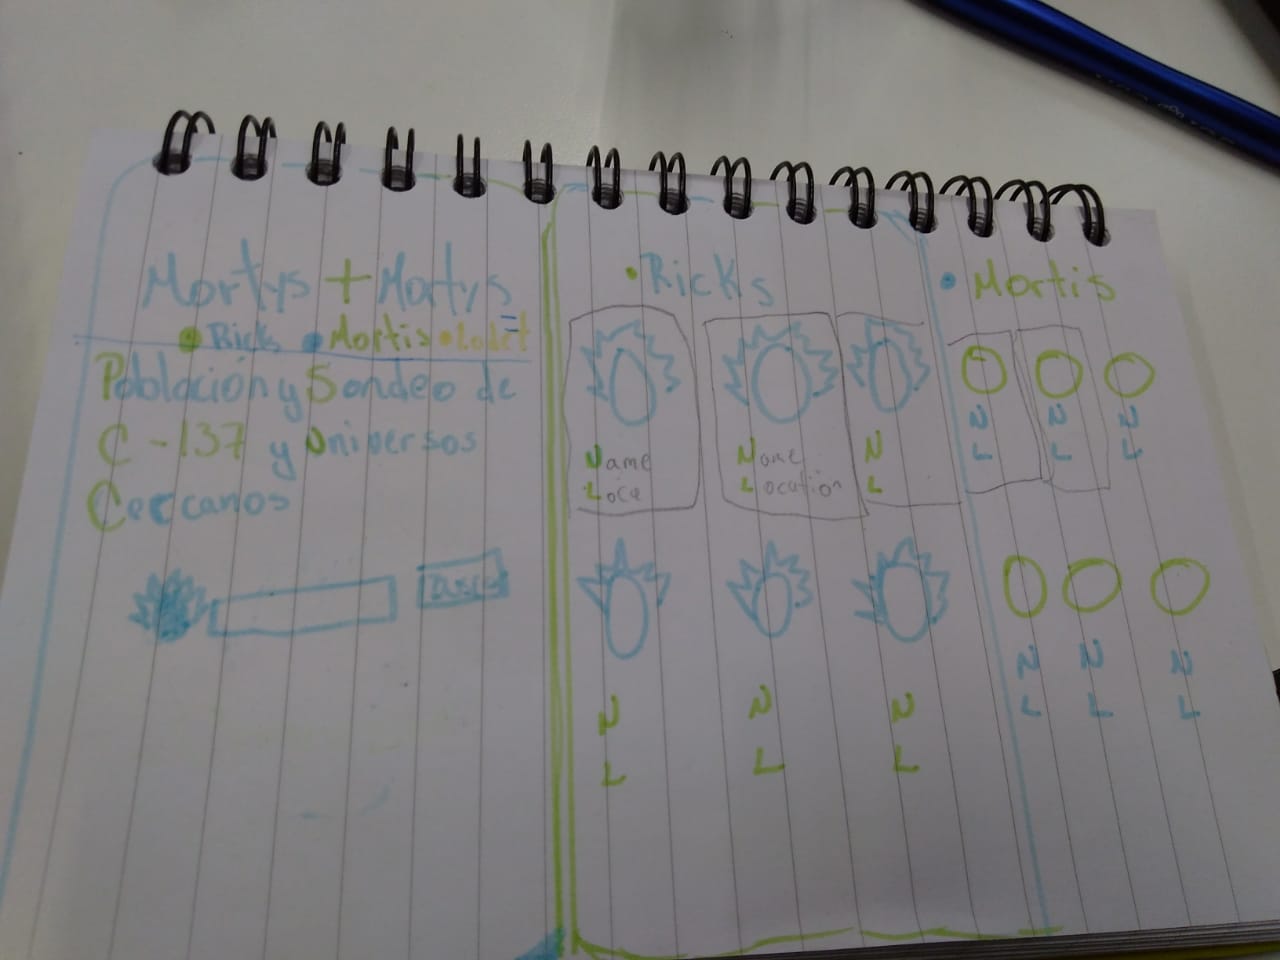 Mortys + Mortys
Ricks Mortis
Población y Sondeo de
C-137 y Universos
Cercanos
Ricks
Name
Loca
Name
Location
N
L
N
L
N
L
N
L
Mortis
N
L
N
L
N
L
N
L
N
L
N
L